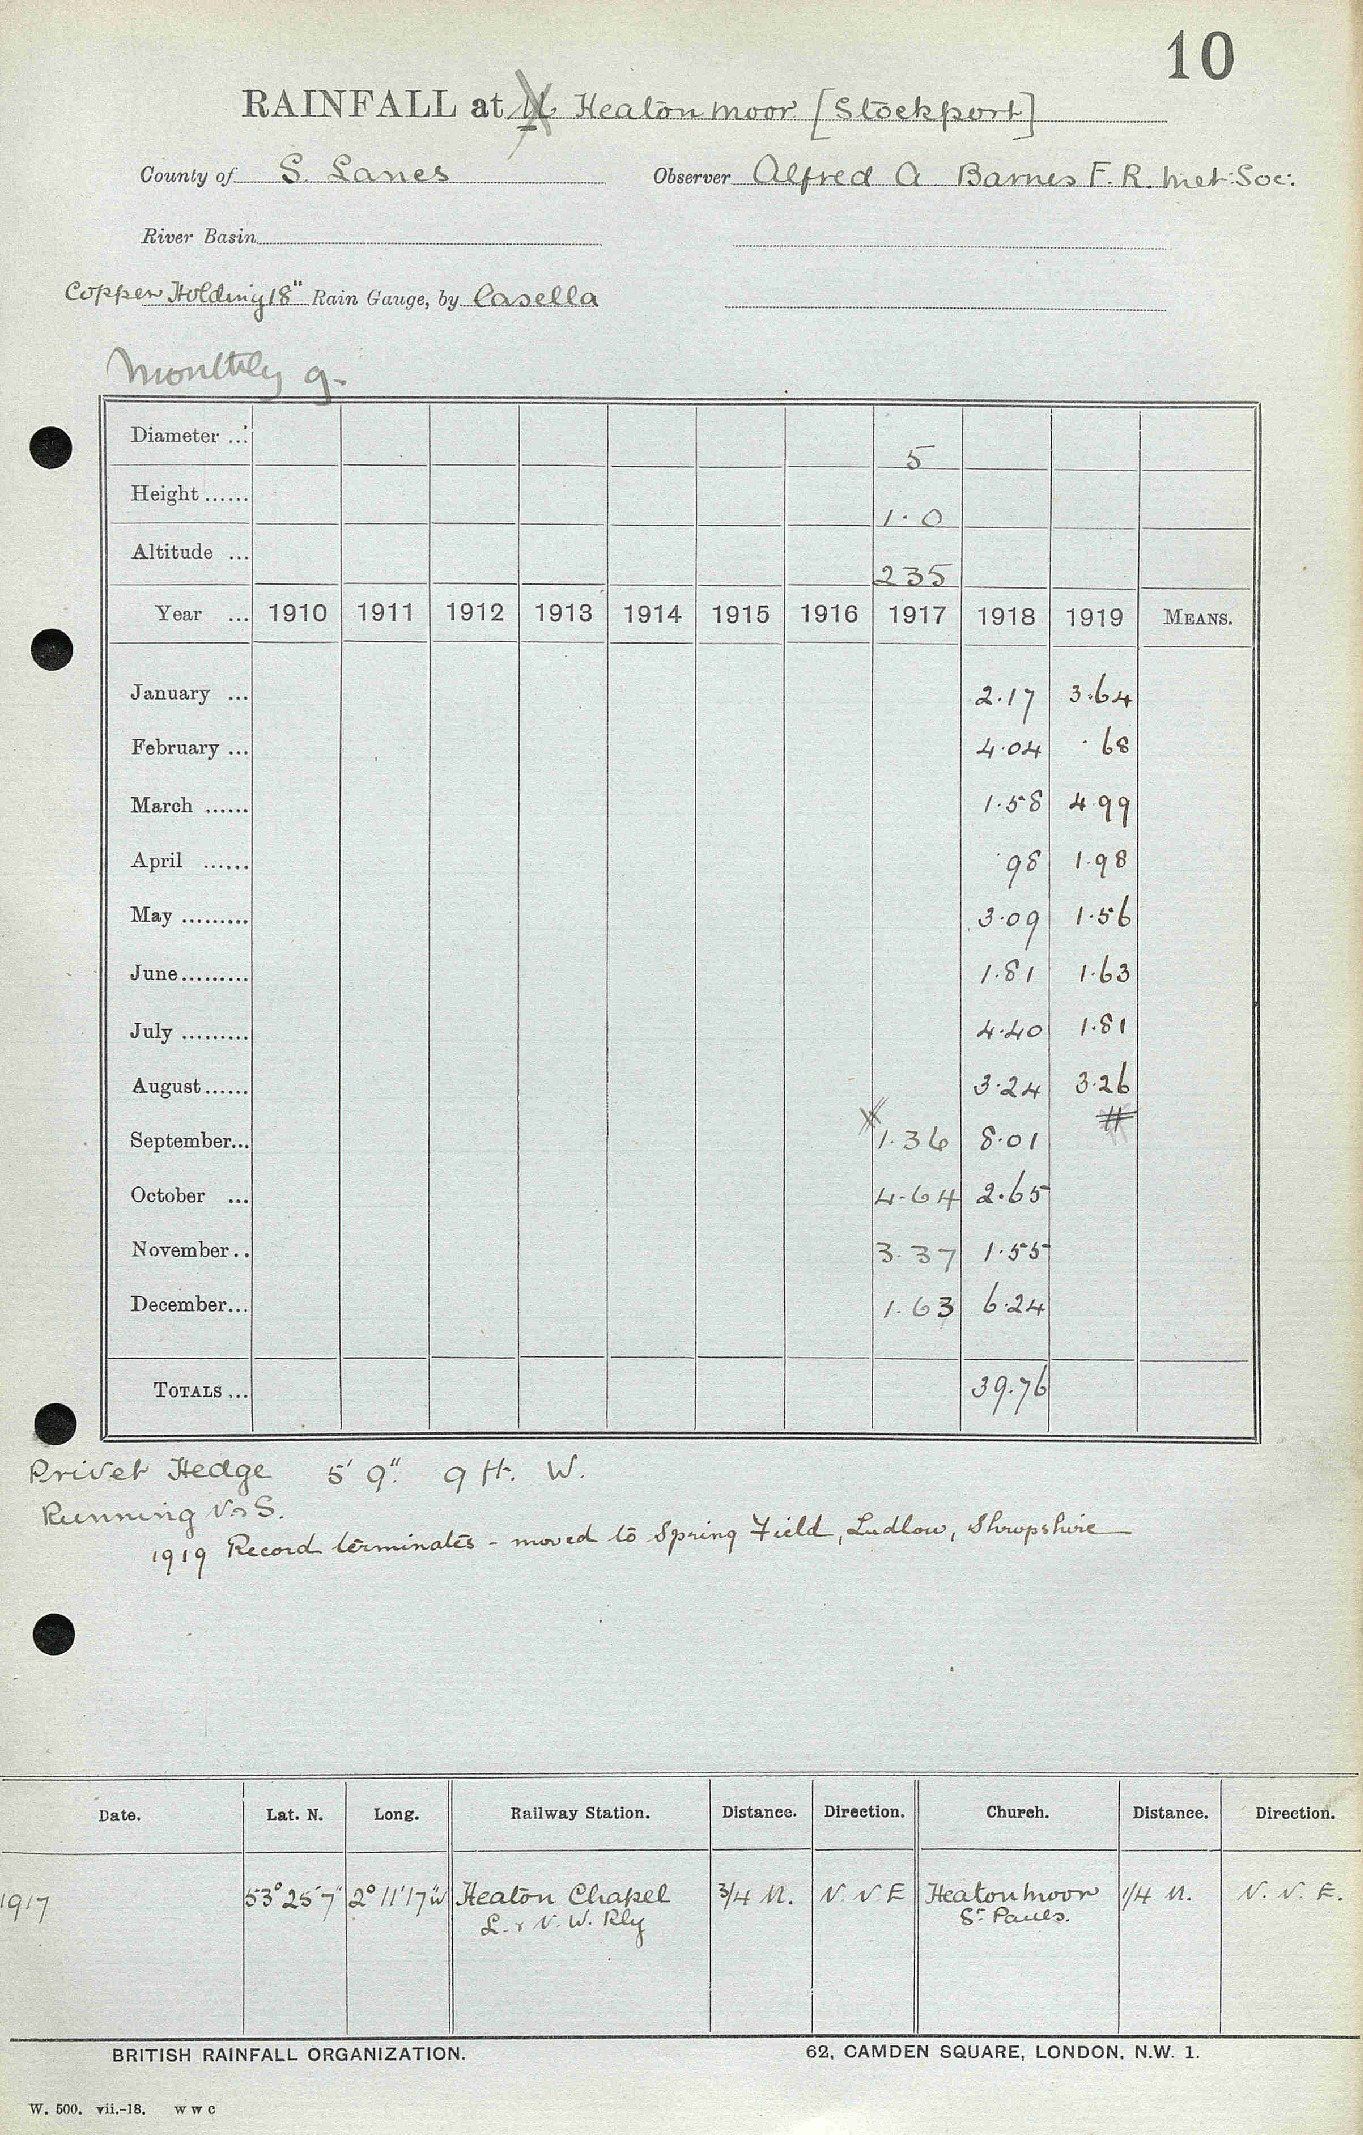 10
RAINFALL at Heaton Moor [Stockport]
County of S. Lancs Observer Alfred A Barnes F.R. Met: Soc:
River Basin
Copper Holding 18" Rain Gauge, by Casella
Monthly g.
Diameter ... 5
Height ...... 1.0
Altitude ... 235
Year ... 1910 1911 1912 1913 1914 1915 1916 1917 1918 1919 MEANS.
January ... 2.17 3.64
February ... 4.04 .68
March ...... 1.58 4.99
April ...... .98 1.98
May ......... 3.09 1.56
June......... 1.81 1.63
July ......... 4.40 1.81
August...... 3.24 3.26
September... 1.36 8.01
October ... 4.64 2.65
November.. 3.37 1.55
December... 1.63 6.24
TOTALS ... 39.76
Privet Hedge 5' 9". 9 ft. W.
Running N to S.
1919 Record terminates - moved to Spring Field, Ludlow, Shropshire
Date. Lat. N. Long. Railway Station. Distance. Direction. Church. Distance. Direction.
1917 53° 25' 7" 2° 11' 17" W Heaton Chapel 3/4 M. N. N E Heaton Moor 1/4 M. N. N. E.
L. & N. W. Rly St. Pauls.
BRITISH RAINFALL ORGANIZATION. 62, CAMDEN SQUARE, LONDON, N.W. 1.
W. 500. vii.-18. w w c